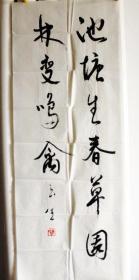 池塘生春草园
林变鸣禽